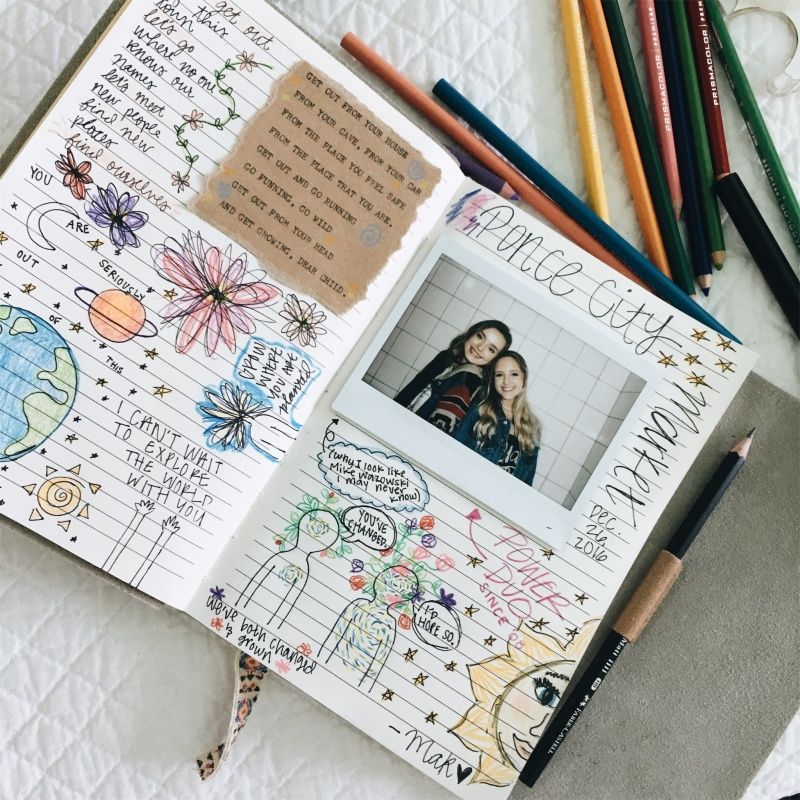 get out
down this
let's go
where no one
knows our
names
let's meet
new people
find new
places
find ourselves
GET OUT FROM YOUR HOUSE
FROM YOUR CAVE, FROM YOUR CAR
FROM THE PLACE YOU FEEL SAFE
FROM THE PLACE THAT YOU ARE.
GET OUT AND GO RUNNING
GO FUNNING, GO WILD
GET OUT FROM YOUR HEAD
AND GET GROWING, DEAR CHILD.
YOU
ARE
SERIOUSLY
OUT
OF
THIS
GROW
WHERE
YOU ARE
planted
I CAN'T WAIT
TO EXPLORE
THE WORLD
WITH YOU
PONCE City
Market
DEC.
26,
2016
(why I look like
Mike Wazowski
I may never
know)
YOU'VE
CHANGED.
I'D
HOPE SO.
we've both changed
& grown
POWER
DUO
SINCE 03
- Mak
PRISMACOLOR PREMIER
PRISMACOLOR
FABER-CASTELL